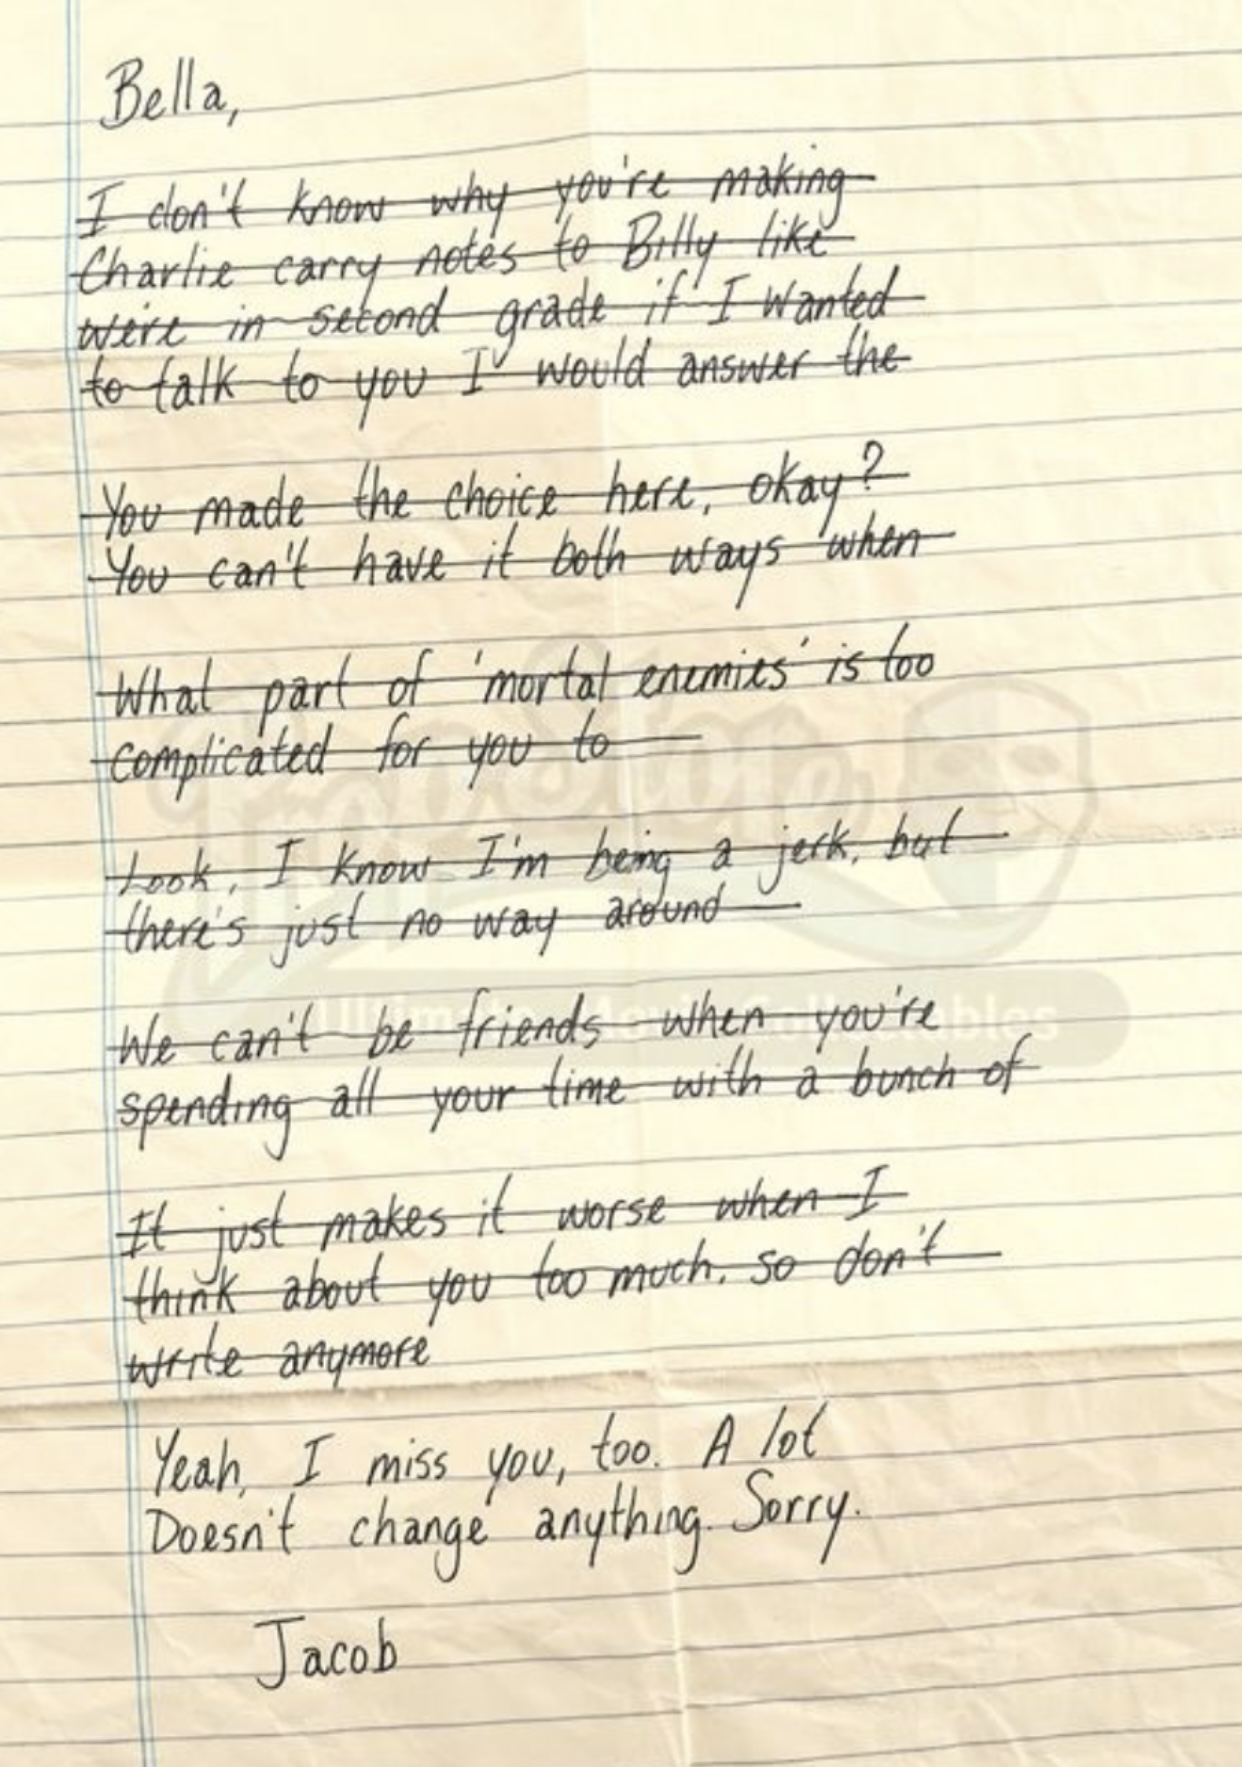 Bella,
I don't know why you're making
Charlie carry notes to Billy like
we're in second grade if I wanted
to talk to you I would answer the
You made the choice here, okay?
You can't have it both ways when
What part of 'mortal enemies' is too
complicated for you to
Look, I know I'm being a jerk, but
there's just no way around
We can't be friends when you're
spending all your time with a bunch of
It just makes it worse when I
think about you too much, so don't
write anymore
Yeah, I miss you, too. A lot
Doesn't change anything. Sorry.
Jacob
PropStore
Ultimate Movie Collectables